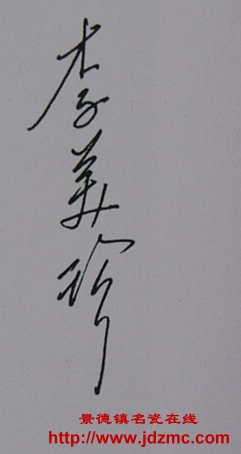 李美珍
景德镇名瓷在线
http://www.jdzmc.com